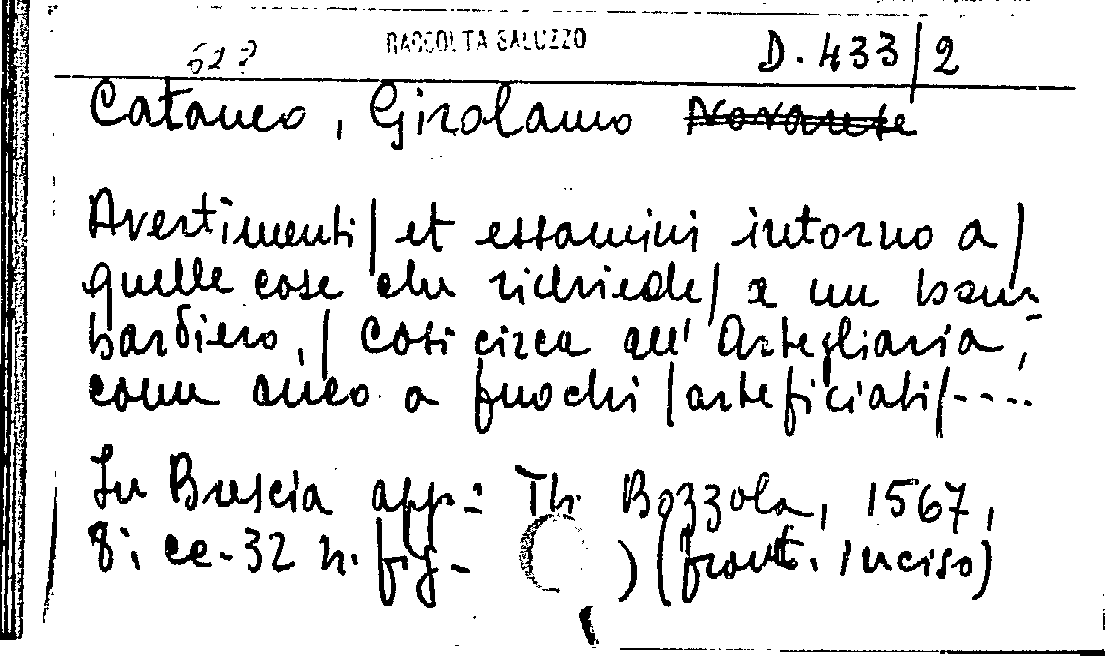 622 RACCOLTA SALUZZO D.433/2
Cataneo, Girolamo Novarese
Avertimenti/ et essamini intorno a/
quelle cose che richiede/ a un bom-
bardiero,/ Cosi circa all' Artegliaria,
come anco a fuochi /arteficiati/----
In Brescia app.: Th. Bozzola, 1567,
8; cc. 32 n. fig. ) (front. inciso)